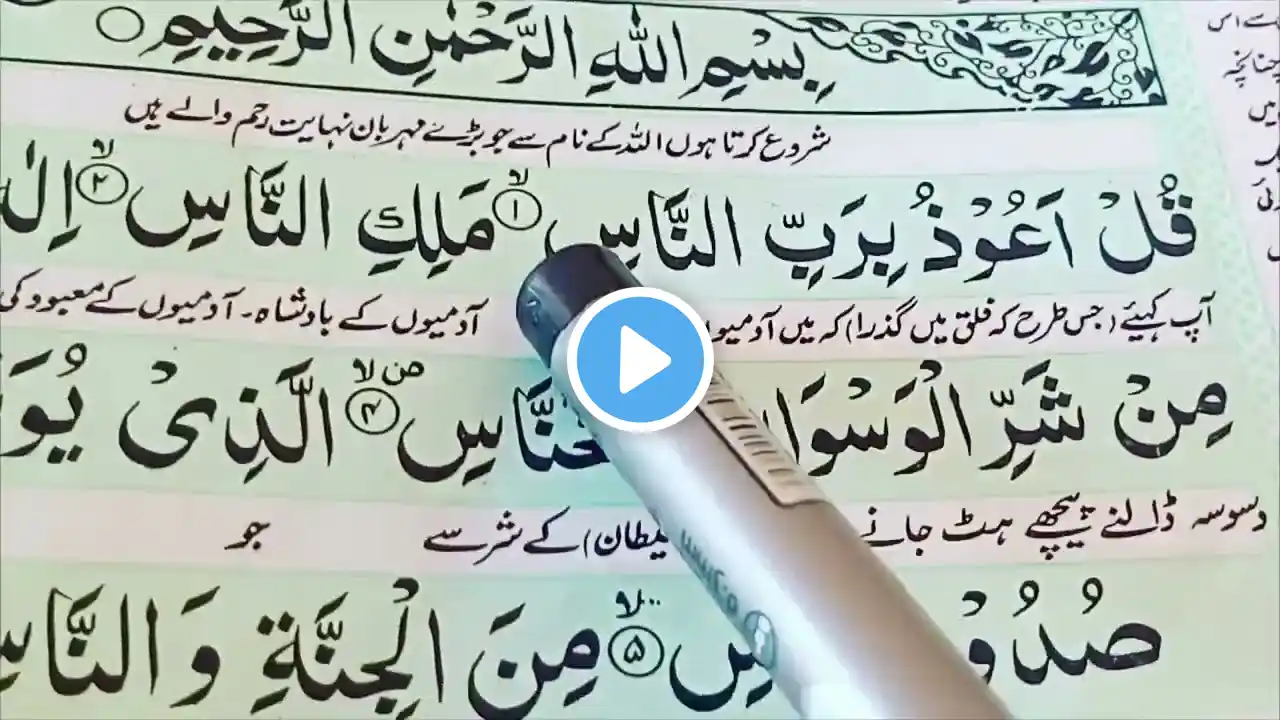 بِسْمِ اللّٰهِ الرَّحْمٰنِ الرَّحِيْمِ
شروع کرتا ہوں اللہ کے نام سے جو بڑے مہربان نہایت رحم والے ہیں
قُلْ اَعُوْذُ بِرَبِّ النَّاسِ ۙ﴿۱﴾ مَلِكِ النَّاسِ ۙ﴿۲﴾ اِلٰ
آپ کہیئے (جس طرح کہ فلق میں گذرا) کہ میں آدمیوں آدمیوں کے بادشاہ۔ آدمیوں کے معبود کی
مِنْ شَرِّ الْوَسْوَا نَّاسِ ﴿۴﴾ الَّذِیْ یُوَ
وسوسہ ڈالنے پیچھے ہٹ جانے یطان) کے شر سے جو
صُدُوْ سِ ﴿۵﴾ مِنَ الْجِنَّةِ وَ النَّاسِ
سے اس
چنانچہ
میں